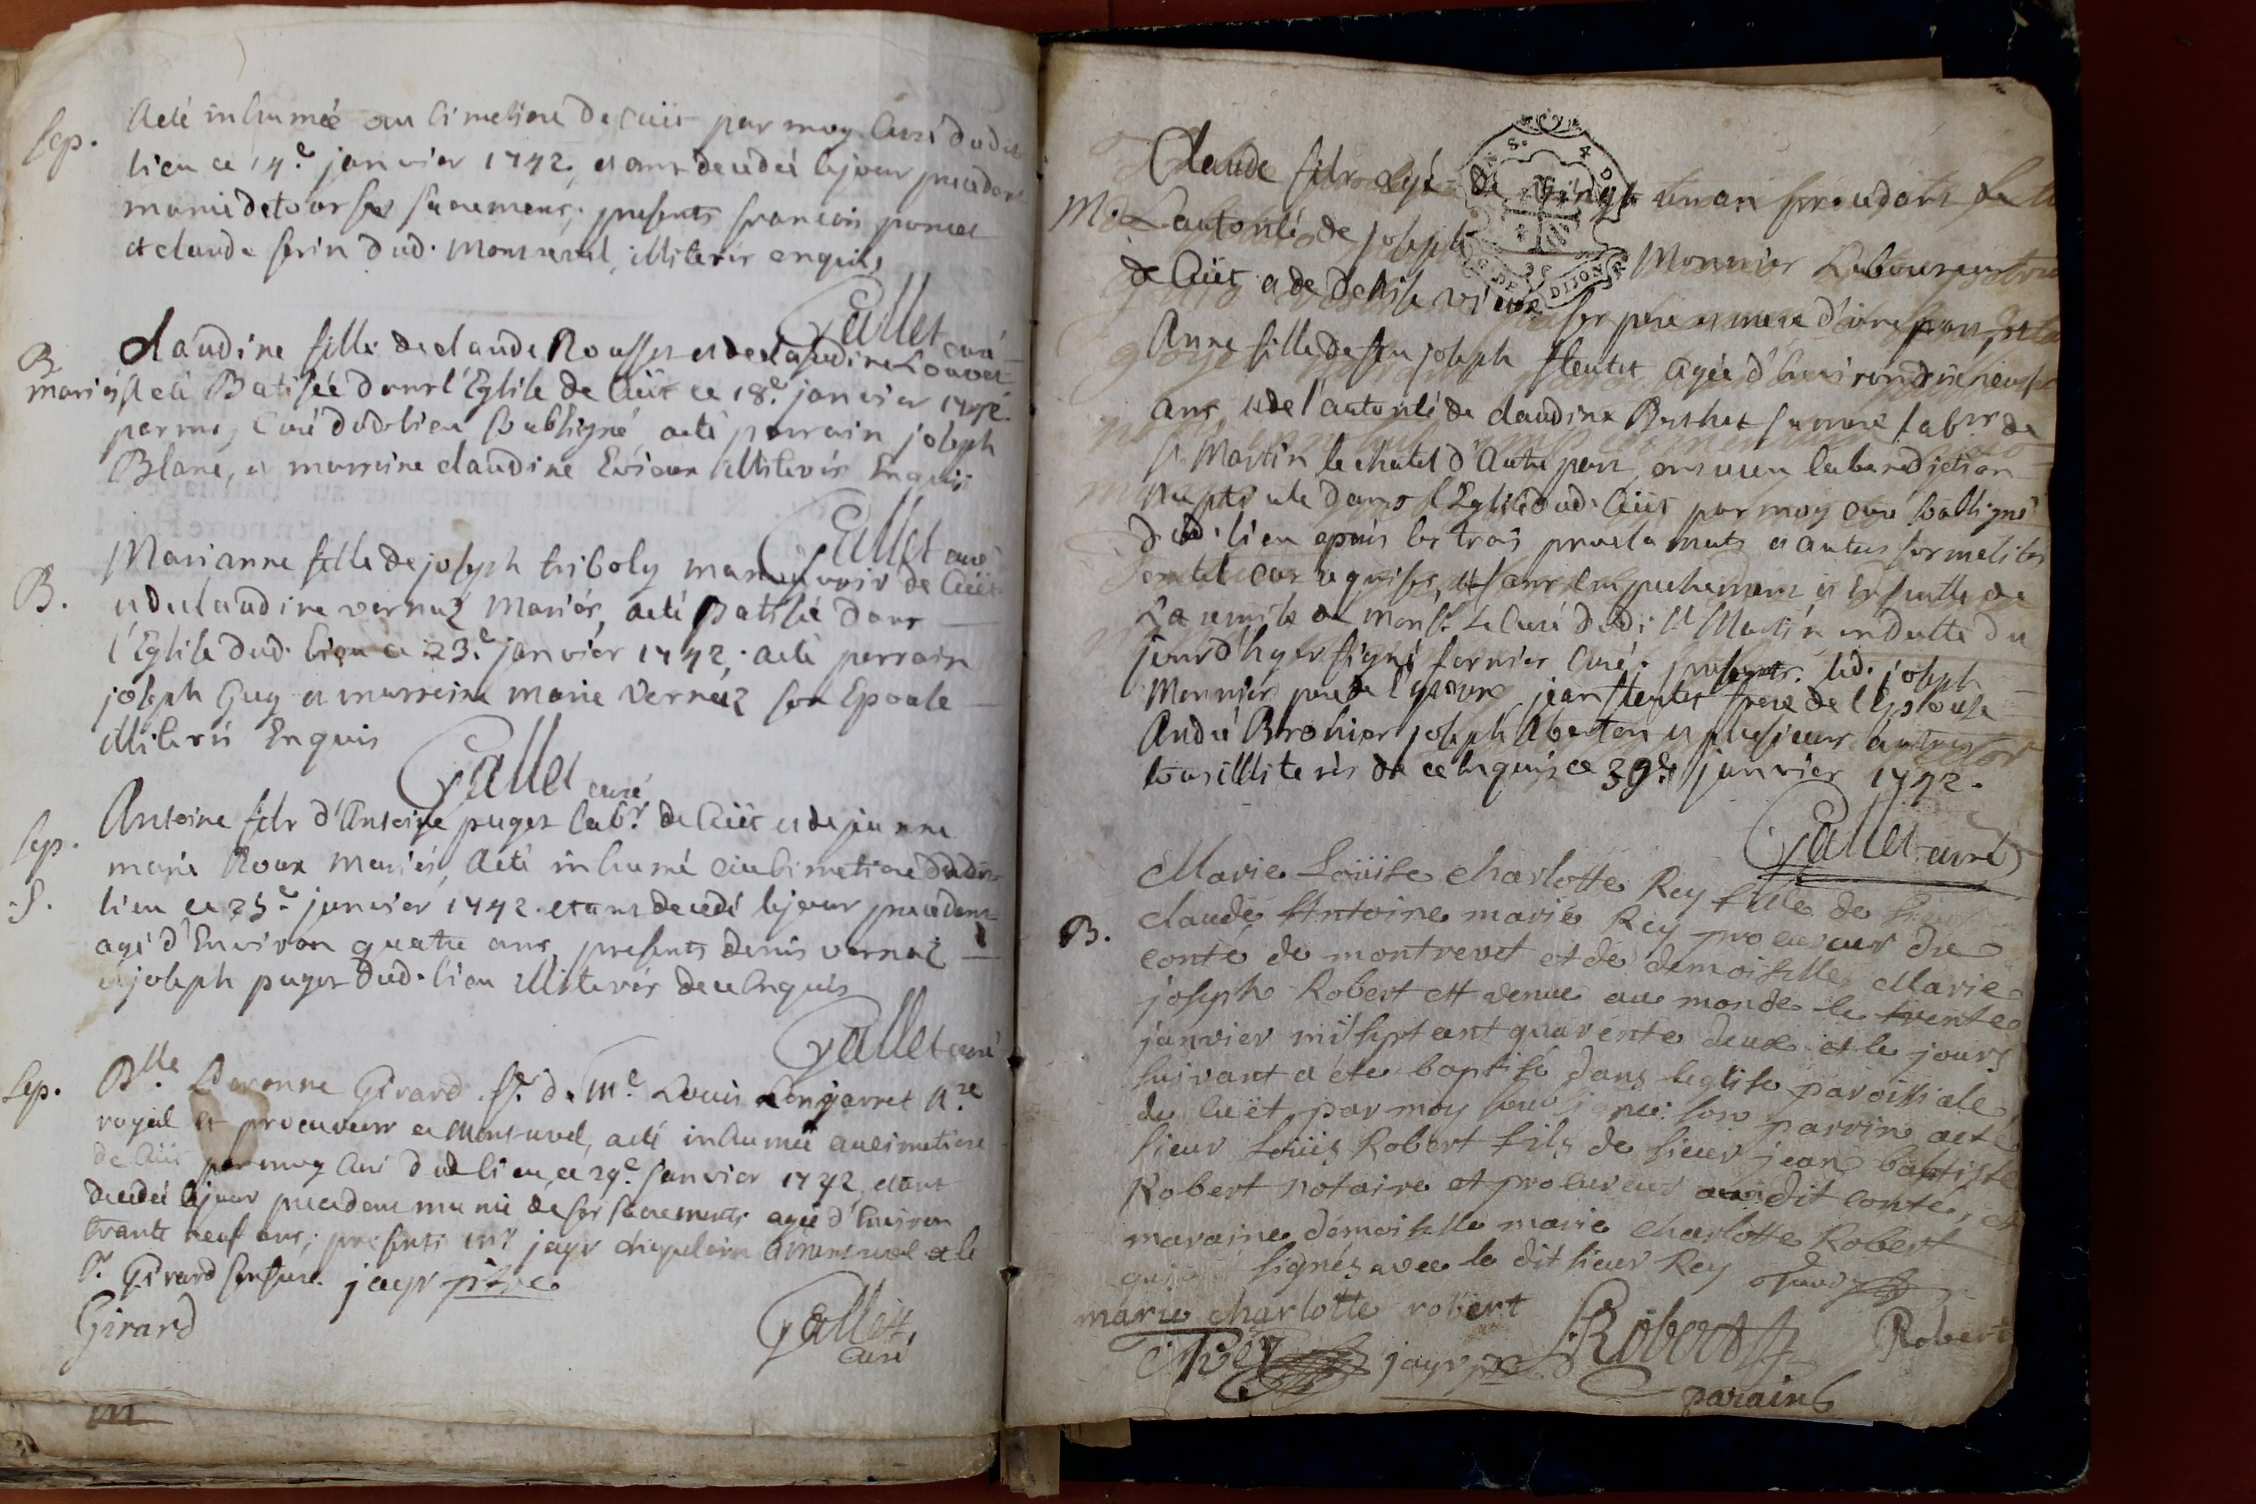 Sep.
a eté inhumée au cimetiere de Cuët par moy Curé dudit
lieu ce 14e janvier 1742, etant decedée le jour precedent
munie de tous ses sacremens, presents francois poncet
et claude serin dud. Montrevel, illiterés enquis
Gallet curé
B.
claudine fille de claude Rousset et de claudine Louvet
mariés a eté Batisée dans l'Eglise de Cuët ce 18e janvier 1742.
par moy Curé dudt lieu soubsigné, a eté parrain joseph
Blanc, et marreine claudine illiterés Enquis
Gallet curé
B.
Marianne fille de joseph triboly manouvrir de Cuët
et de claudine vernaz Mariés, a eté Batisée dans
l'Eglise dud. lieu ce 23e janvier 1742, a eté parrain
joseph Guy et marreine marie vernaz son Epouse
illiterés Enquis
Gallet curé
Sep.
Antoine fils d'Antoine puget labr. de Cuët et de jeanne
marie Roux Mariés, a eté inhumé au cimetiere dudit
S.
lieu ce 25e janvier 1742. etant decedé le jour precedent
agé d'Environ quatre ans, presents denis vernaz
et joseph puget dud. lieu illiterés de ce Enquis
Gallet curé
Sep.
Dlle Girard fe. de Me Louis Longjarret Nre
royal et procureur a Montrevel, a eté inhumée au cimetiere
de Cuët par moy Curé dud lieu, ce 29e janvier 1742, etant
decedée le jour precedent munie de ses sacrements agée d'Environ
trante neuf ans, presents Mr jayr chapelain a Montrevel et le
Sr. Girard jayr ptre
Girard
Gallet,
Curé
M.
Claude fils agé de Vingt un an procedant de
L'autorité de joseph Monnier Laboureur
de Cuët et de Denise vieux ses pere et mere d'une part, et
Anne fille de feu joseph fleutet agée d'Environ dixneuf
ans, et de l'autorité de claudine Berthet sa mere labrs de
St Martin le chatel d'autre part, ont reçu la benediction
nuptiale dans l'Eglise dud. Cuët par moy curé soubsigné
dud. lieu apres les trois proclamats et autres formalites
en tel cas requises, et sans Empechement et Ensuitte de
La remise de Monsr. Le Curé dud. St Martin en datte du
jourd'huy signé fernier Curé. presents. led. joseph
Monnier pere de l'epoux, jean fleutet frere de l'Epouse
André Brohier joseph et plusieurs autres
tous illiterés de ce Enquis ce 30e janvier 1742.
Gallet curé
B.
Marie Loüise charlotte Rey fille de Sieur
claude Antoine marie Rey procureur du
conté de montrevel et de demoiselle Marie
joseph Robert est venue au monde le trente
janvier mil sept cent quarente deux et le jours
suivant a été baptisé dans leglise paroissiale
de Cuët, par moy soussigné: son parrin a eté
sieur Loüis Robert fils de sieur jean baptiste
Robert notaire et procureur audit conté, et
maraine demoiselle marie charlotte Robert
qui signés avec le dit sieur Rey
marie charlotte robert
Robert
Robert
Rey
jayr ptre
parain